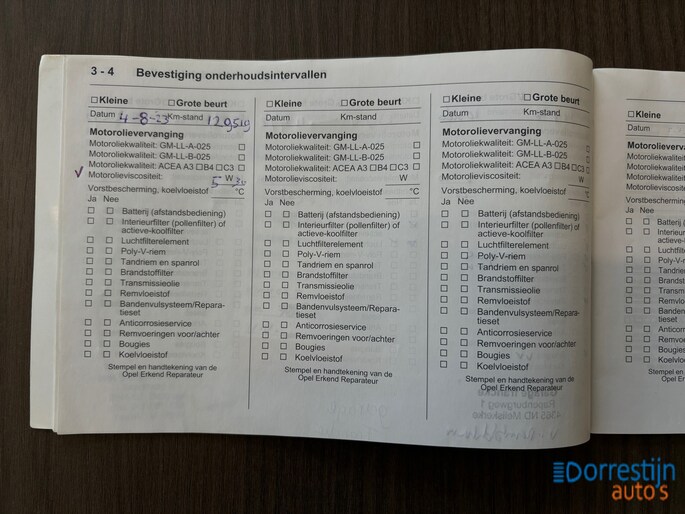 3 - 4 Bevestiging onderhoudsintervallen
☐ Kleine ☐ Grote beurt
Datum 4-8-23 Km-stand 129519
Motorolievervanging
Motoroliekwaliteit: GM-LL-A-025 ☐
Motoroliekwaliteit: GM-LL-B-025 ☐
Motoroliekwaliteit: ACEA A3 ☐B4 ☐C3 ☐
√ Motorolieviscositeit: 5 W 30
Vorstbescherming, koelvloeistof °C
Ja Nee
☐ ☐ Batterij (afstandsbediening)
☐ ☐ Interieurfilter (pollenfilter) of
actieve-koolfilter
☐ ☐ Luchtfilterelement
☐ ☐ Poly-V-riem
☐ ☐ Tandriem en spanrol
☐ ☐ Brandstoffilter
☐ ☐ Transmissieolie
☐ ☐ Remvloeistof
☐ ☐ Bandenvulsysteem/Repara-
tieset
☐ ☐ Anticorrosieservice
☐ ☐ Remvoeringen voor/achter
☐ ☐ Bougies
☐ ☐ Koelvloeistof
Stempel en handtekening van de
Opel Erkend Reparateur
☐ Kleine ☐ Grote beurt
Datum Km-stand
Motorolievervanging
Motoroliekwaliteit: GM-LL-A-025 ☐
Motoroliekwaliteit: GM-LL-B-025 ☐
Motoroliekwaliteit: ACEA A3 ☐B4 ☐C3 ☐
Motorolieviscositeit: W
Vorstbescherming, koelvloeistof °C
Ja Nee
☐ ☐ Batterij (afstandsbediening)
☐ ☐ Interieurfilter (pollenfilter) of
actieve-koolfilter
☐ ☐ Luchtfilterelement
☐ ☐ Poly-V-riem
☐ ☐ Tandriem en spanrol
☐ ☐ Brandstoffilter
☐ ☐ Transmissieolie
☐ ☐ Remvloeistof
☐ ☐ Bandenvulsysteem/Repara-
tieset
☐ ☐ Anticorrosieservice
☐ ☐ Remvoeringen voor/achter
☐ ☐ Bougies
☐ ☐ Koelvloeistof
Stempel en handtekening van de
Opel Erkend Reparateur
☐ Kleine ☐ Grote beurt
Datum Km-stand
Motorolievervanging
Motoroliekwaliteit: GM-LL-A-025 ☐
Motoroliekwaliteit: GM-LL-B-025 ☐
Motoroliekwaliteit: ACEA A3 ☐B4 ☐C3 ☐
Motorolieviscositeit: W
Vorstbescherming, koelvloeistof °C
Ja Nee
☐ ☐ Batterij (afstandsbediening)
☐ ☐ Interieurfilter (pollenfilter) of
actieve-koolfilter
☐ ☐ Luchtfilterelement
☐ ☐ Poly-V-riem
☐ ☐ Tandriem en spanrol
☐ ☐ Brandstoffilter
☐ ☐ Transmissieolie
☐ ☐ Remvloeistof
☐ ☐ Bandenvulsysteem/Repara-
tieset
☐ ☐ Anticorrosieservice
☐ ☐ Remvoeringen voor/achter
☐ ☐ Bougies
☐ ☐ Koelvloeistof
Stempel en handtekening van de
Opel Erkend Reparateur
☐ Kleine
Datum
Ja Nee
Dorrestijn
auto's